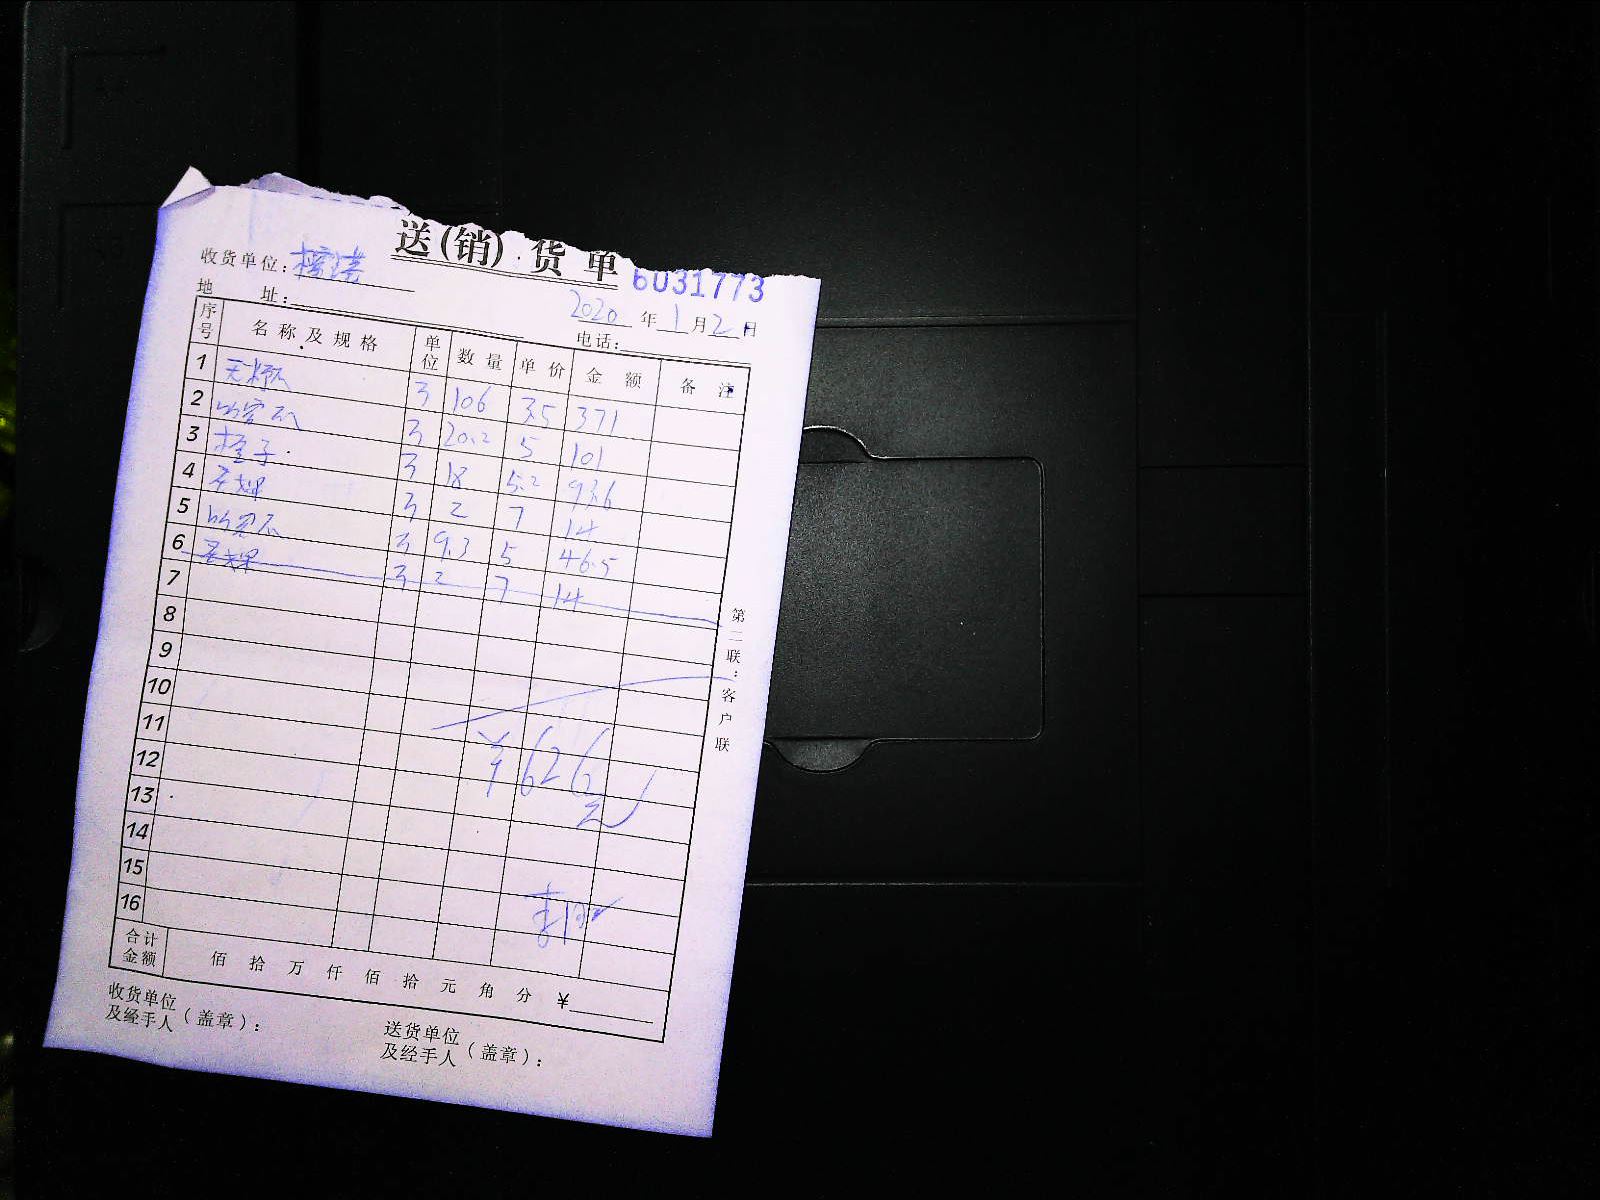 送(销)货单
收货单位:
6031773
地 址:
2020 年 1 月 2 日
电话:
序号 名称及规格 单位 数量 单价 金额 备注
1 106 3.5 371
2 20.2 5 101
3 橙子 18 5.2 93.6
4 2 7 14
5 9.3 5 46.5
6 2 7 14
7
8
9
10
11
¥626元
12
13
14
15
16
合计金额 佰 拾 万 仟 佰 拾 元 角 分 ¥
收货单位及经手人(盖章):
送货单位及经手人(盖章):
第二联:客户联